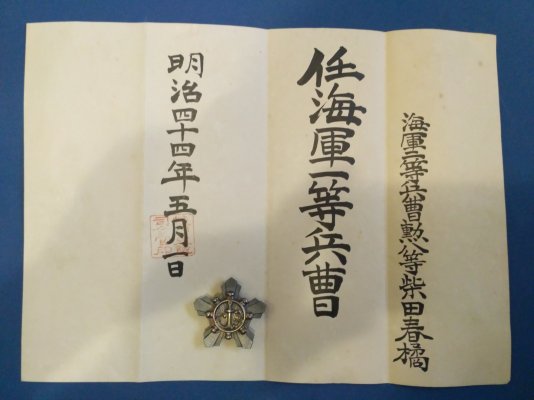 海軍二等兵曹勲八等柴田春橘
任海軍一等兵曹
明治四十四年五月一日